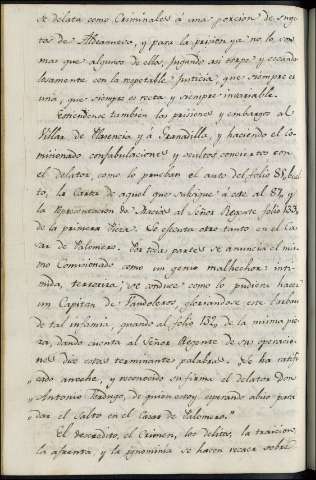 se delata como Criminales á una porcion de suge-
tos de Aldeanueva, y para la prision ya no lo son
mas que algunos de ellos, jugando asi torpe y escanda-
losamente con la respetable justicia que siempre es
una, que siempre es recta y siempre invariable.
Estiendense tambien las prisiones y embargos al
Villar de Plasencia y á Granadilla, y haciendo el Co-
misionado confabulaciones y ocultos conciertos con
el delator, como lo prueban el auto del folio 85, buel-
to, la Carta de aquel que subsigue á este al 87, y
la representacion de Macias al Señor Regente folio 133,
de la primera Pieza. Se efectua otro tanto en el Ca-
sar de Palomero. Por todas partes se anuncia el mis-
mo Comisionado como un genio malhechor: inti-
mida, terroriza; se conduce como lo pudiera hacer
un Capitan de Vandoleros, gloriandose este
de tal infamia, quando al folio 132, de la misma pie-
za, dando cuenta al Señor Regente de sus operacio-
nes dice estas terminantes palabras. "Se ha ratifi-
"cado anoche, y reconocido su firma el delator Don
"Antonio Perdugo, de quien estoy esperando aviso para
"dar el salto en el Casar de Palomero."
El descredito, el Crimen, los delitos, la traicion,
la afrenta, y la ignominia se hacen recaer sobre